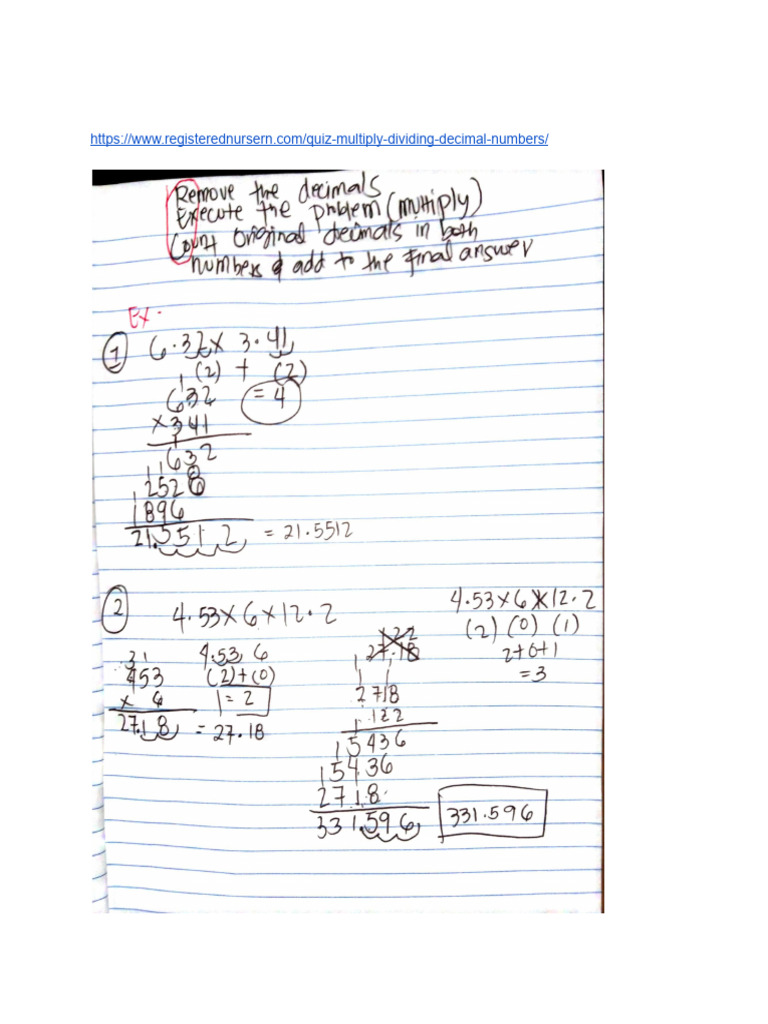 https://www.registerednursern.com/quiz-multiply-dividing-decimal-numbers/
Remove the decimals
Execute the problem (multiply)
Count original decimals in both
numbers & add to the final answer
Ex.
1 6.32 x 3.41
(2) + (2)
= 4
1
632
x 341
632
11
2528
1896
21.5512 = 21.5512
2 4.53 x 6 x 12.2
31
453
x 6
27.18 = 27.18
4.53 6
(2)+(0)
= 2
2718
122
5436
5436
2718
331.596
331.596
4.53 x 6 x 12.2
(2) (0) (1)
2+0+1
= 3